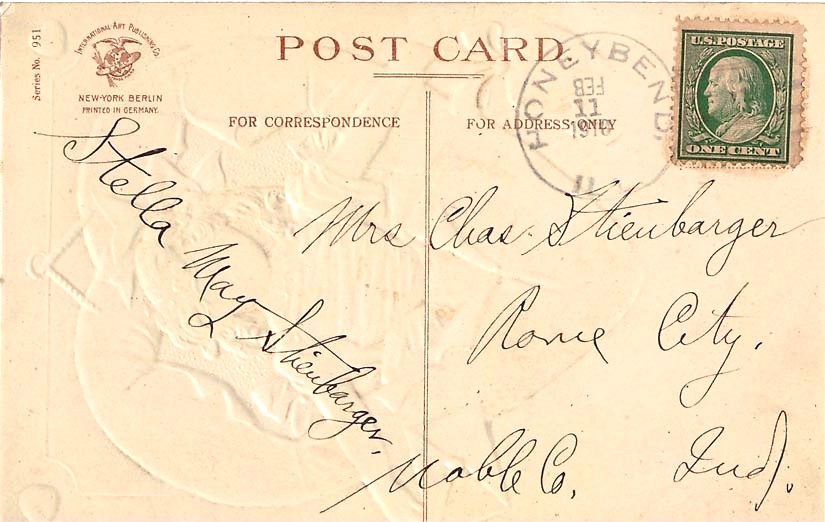 Series No. 951
INTERNATIONAL ART PUBLISHING CO.
NEW-YORK BERLIN
PRINTED IN GERMANY.
POST CARD.
FOR CORRESPONDENCE
FOR ADDRESS ONLY
HONEYBEND
FEB
11
1910
U.S. POSTAGE
ONE CENT
Stella May Stienbarger.
Mrs Chas. Stienbarger
Rome City.
Noble Co. Ind.